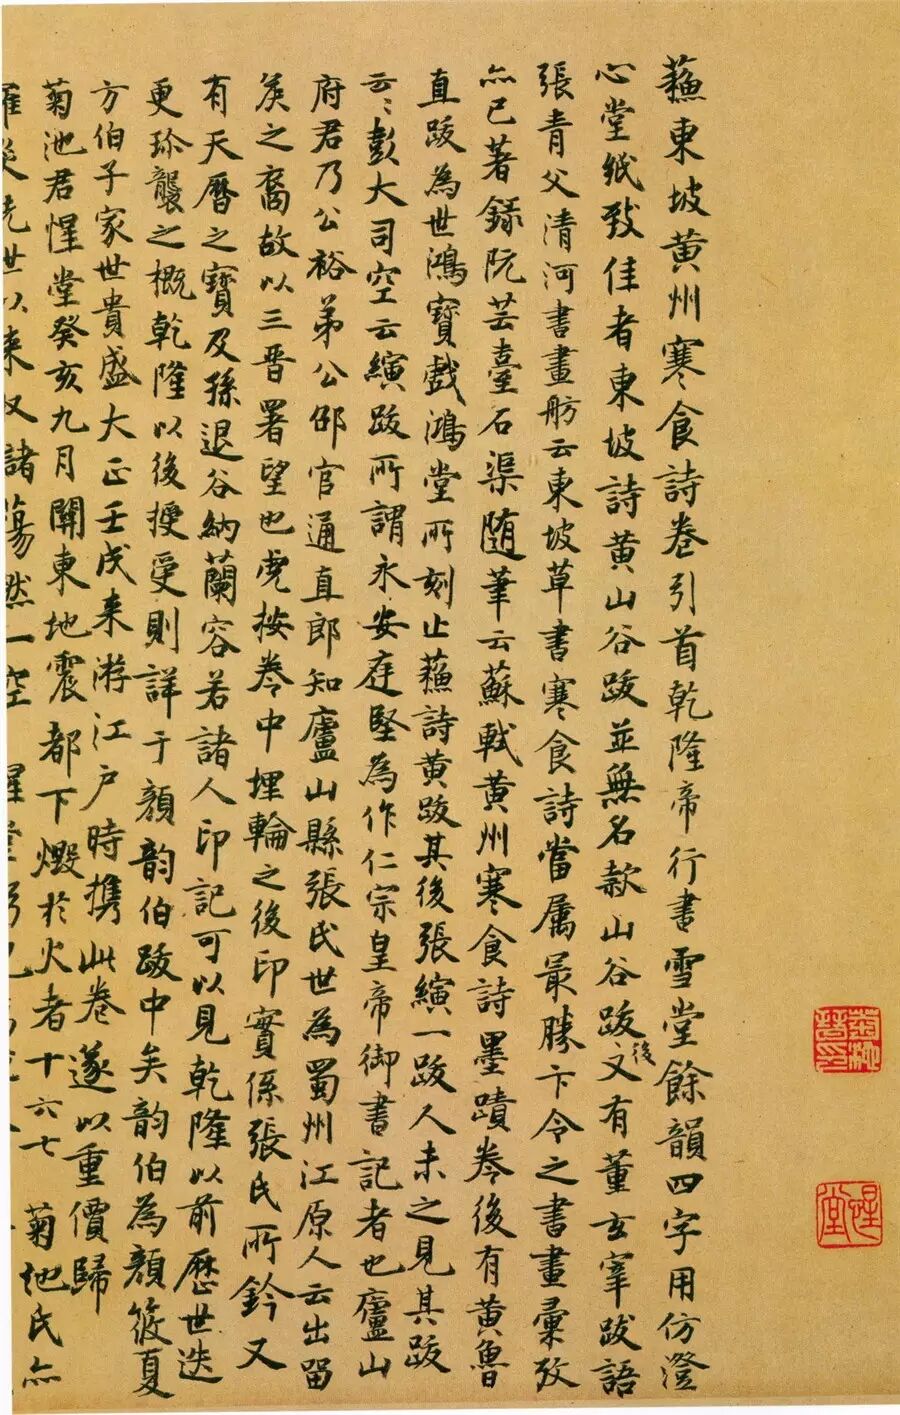 蘓東坡黄州寒食詩卷引首乾隆帝行書雪堂餘韻四字用仿澄
心堂紙致佳者東坡詩黄山谷跋並無名款山谷跋後又有董玄宰跋語
張青父清河書畫舫云東坡草書寒食詩當属最勝卞令之書畫彙攷
亦已著録阮芸臺石渠随筆云蘇軾黄州寒食詩墨蹟卷後有黄魯
直跋為世鴻寶戲鴻堂所刻止蘓詩黄跋其後張縯一跋人未之見其跋
云々彭大司空云縯跋所謂永安庭堅為作仁宗皇帝御書記者也廬山
府君乃公裕弟公邵官通直郎知廬山縣張氏世為蜀州江原人云出留
矦之裔故以三晋署望也虎按卷中埋輪之後印實係張氏所鈐又
有天曆之寶及孫退谷納蘭容若諸人印記可以見乾隆以前歴世迭
更珎襲之概乾隆以後授受則詳于顔韵伯跋中矣韵伯為顔筱夏
方伯子家世貴盛大正壬戌来游江户時携此卷遂以重價歸
菊池君惺堂癸亥九月關東地震都下燬於火者十六七 菊池氏亦
罹災先世以来収諸蕩然一空 惺堂
菊池晋印
惺堂